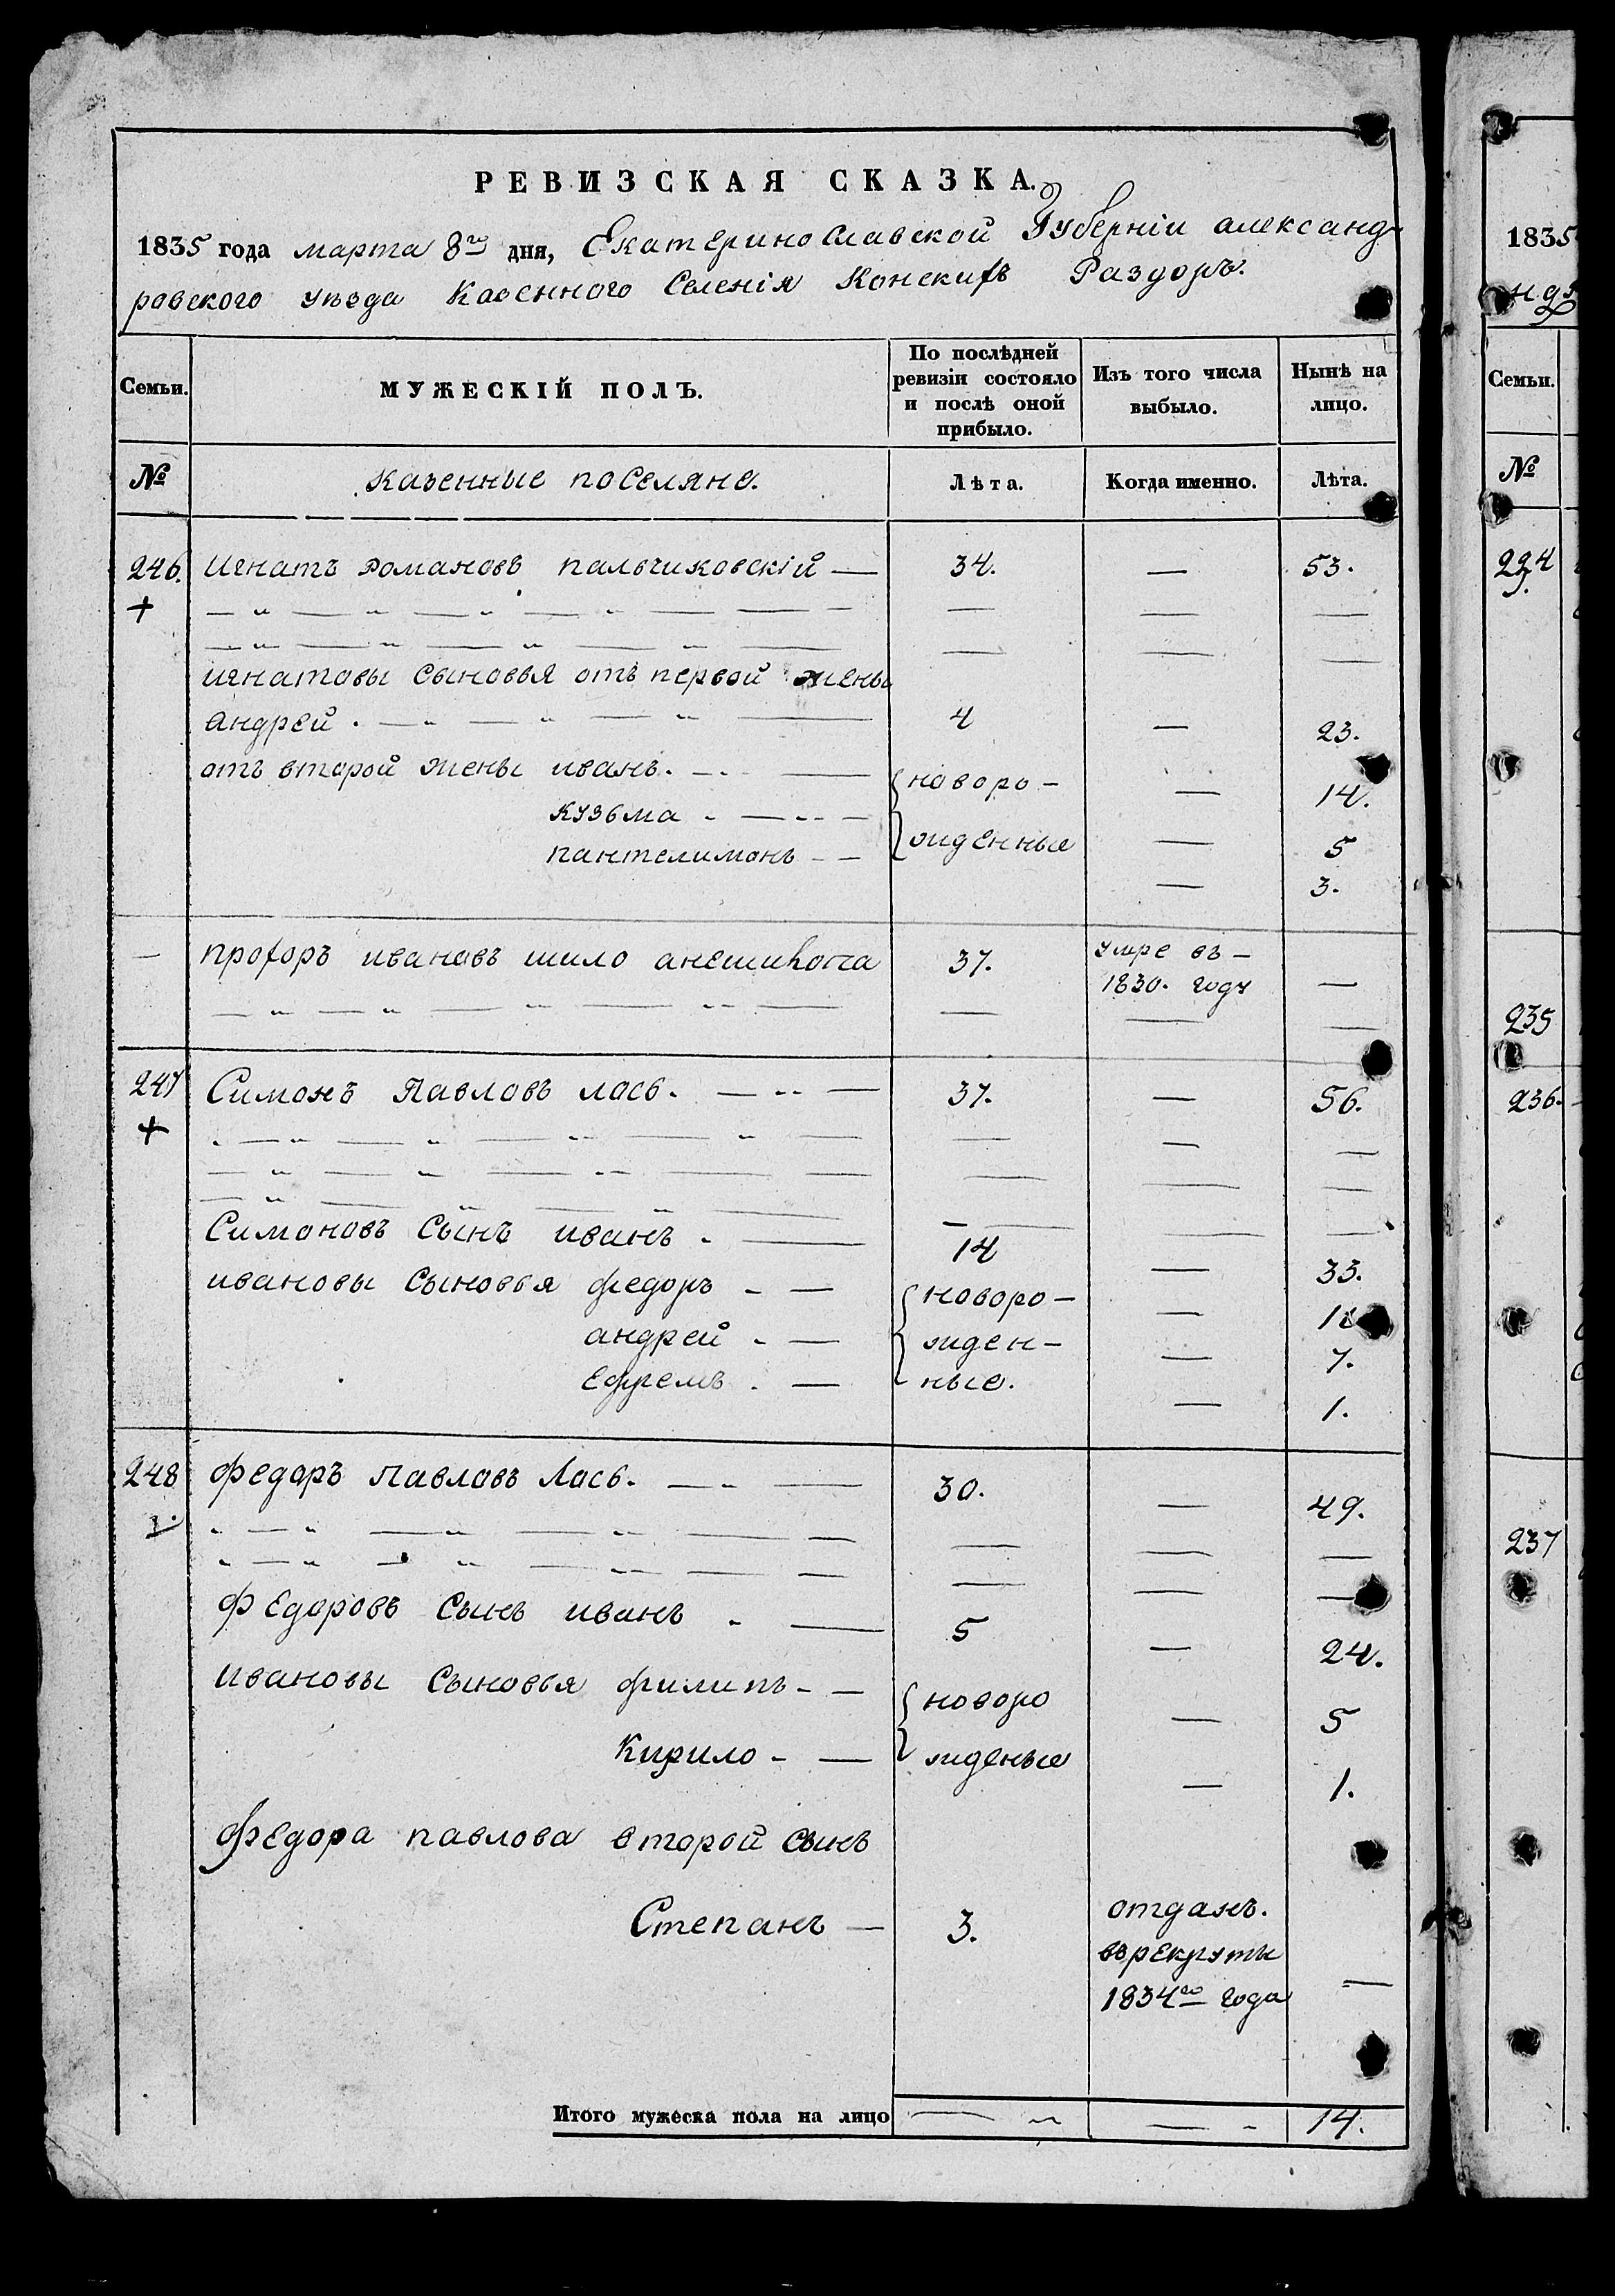 РЕВИЗСКАЯ СКАЗКА.
1835 года марта 8го дня, Екатеринославской Губерніи александ-
ровского уѣзда Казенного Селенія Конскихъ Раздоръ.
Семьи. МУЖЕСКІЙ ПОЛЪ. По послѣдней ревизіи состояло и послѣ оной прибыло. Изъ того числа выбыло. Нынѣ на лицо.
№ казенные поселяне. Лѣта. Когда именно. Лѣта.
246. Игнатъ Романовъ пальчиковскій — 34. — 53.
+
игнатовы сыновья отъ первой жены
андрей. 4 — 23.
отъ второй жены иванъ. { новоро- — 14.
кузьма { жденные — 5
пантелимонъ — 3.
— прохоръ ивановъ шило 37. умре въ —
1830. году —
247 Симонъ Павловъ лась. 37. — 56.
+
Симоновъ Сынъ иванъ. 14 — 33.
ивановы Сыновья федоръ { новоро- —
андрей { жден- — 7.
Ефремъ { ные. — 1.
248 федоръ Павловъ Лась. 30. — 49.
федоровъ Сынъ иванъ 5 — 24.
Ивановы Сыновья филипъ { новоро — 5
Кирило { жденые — 1.
федора павлова второй сынъ
Степанъ — 3. отданъ.
врекруты
1834го года —
Итого мужеска пола на лицо 14.
1835
Семьи.
№
234
235
236.
237